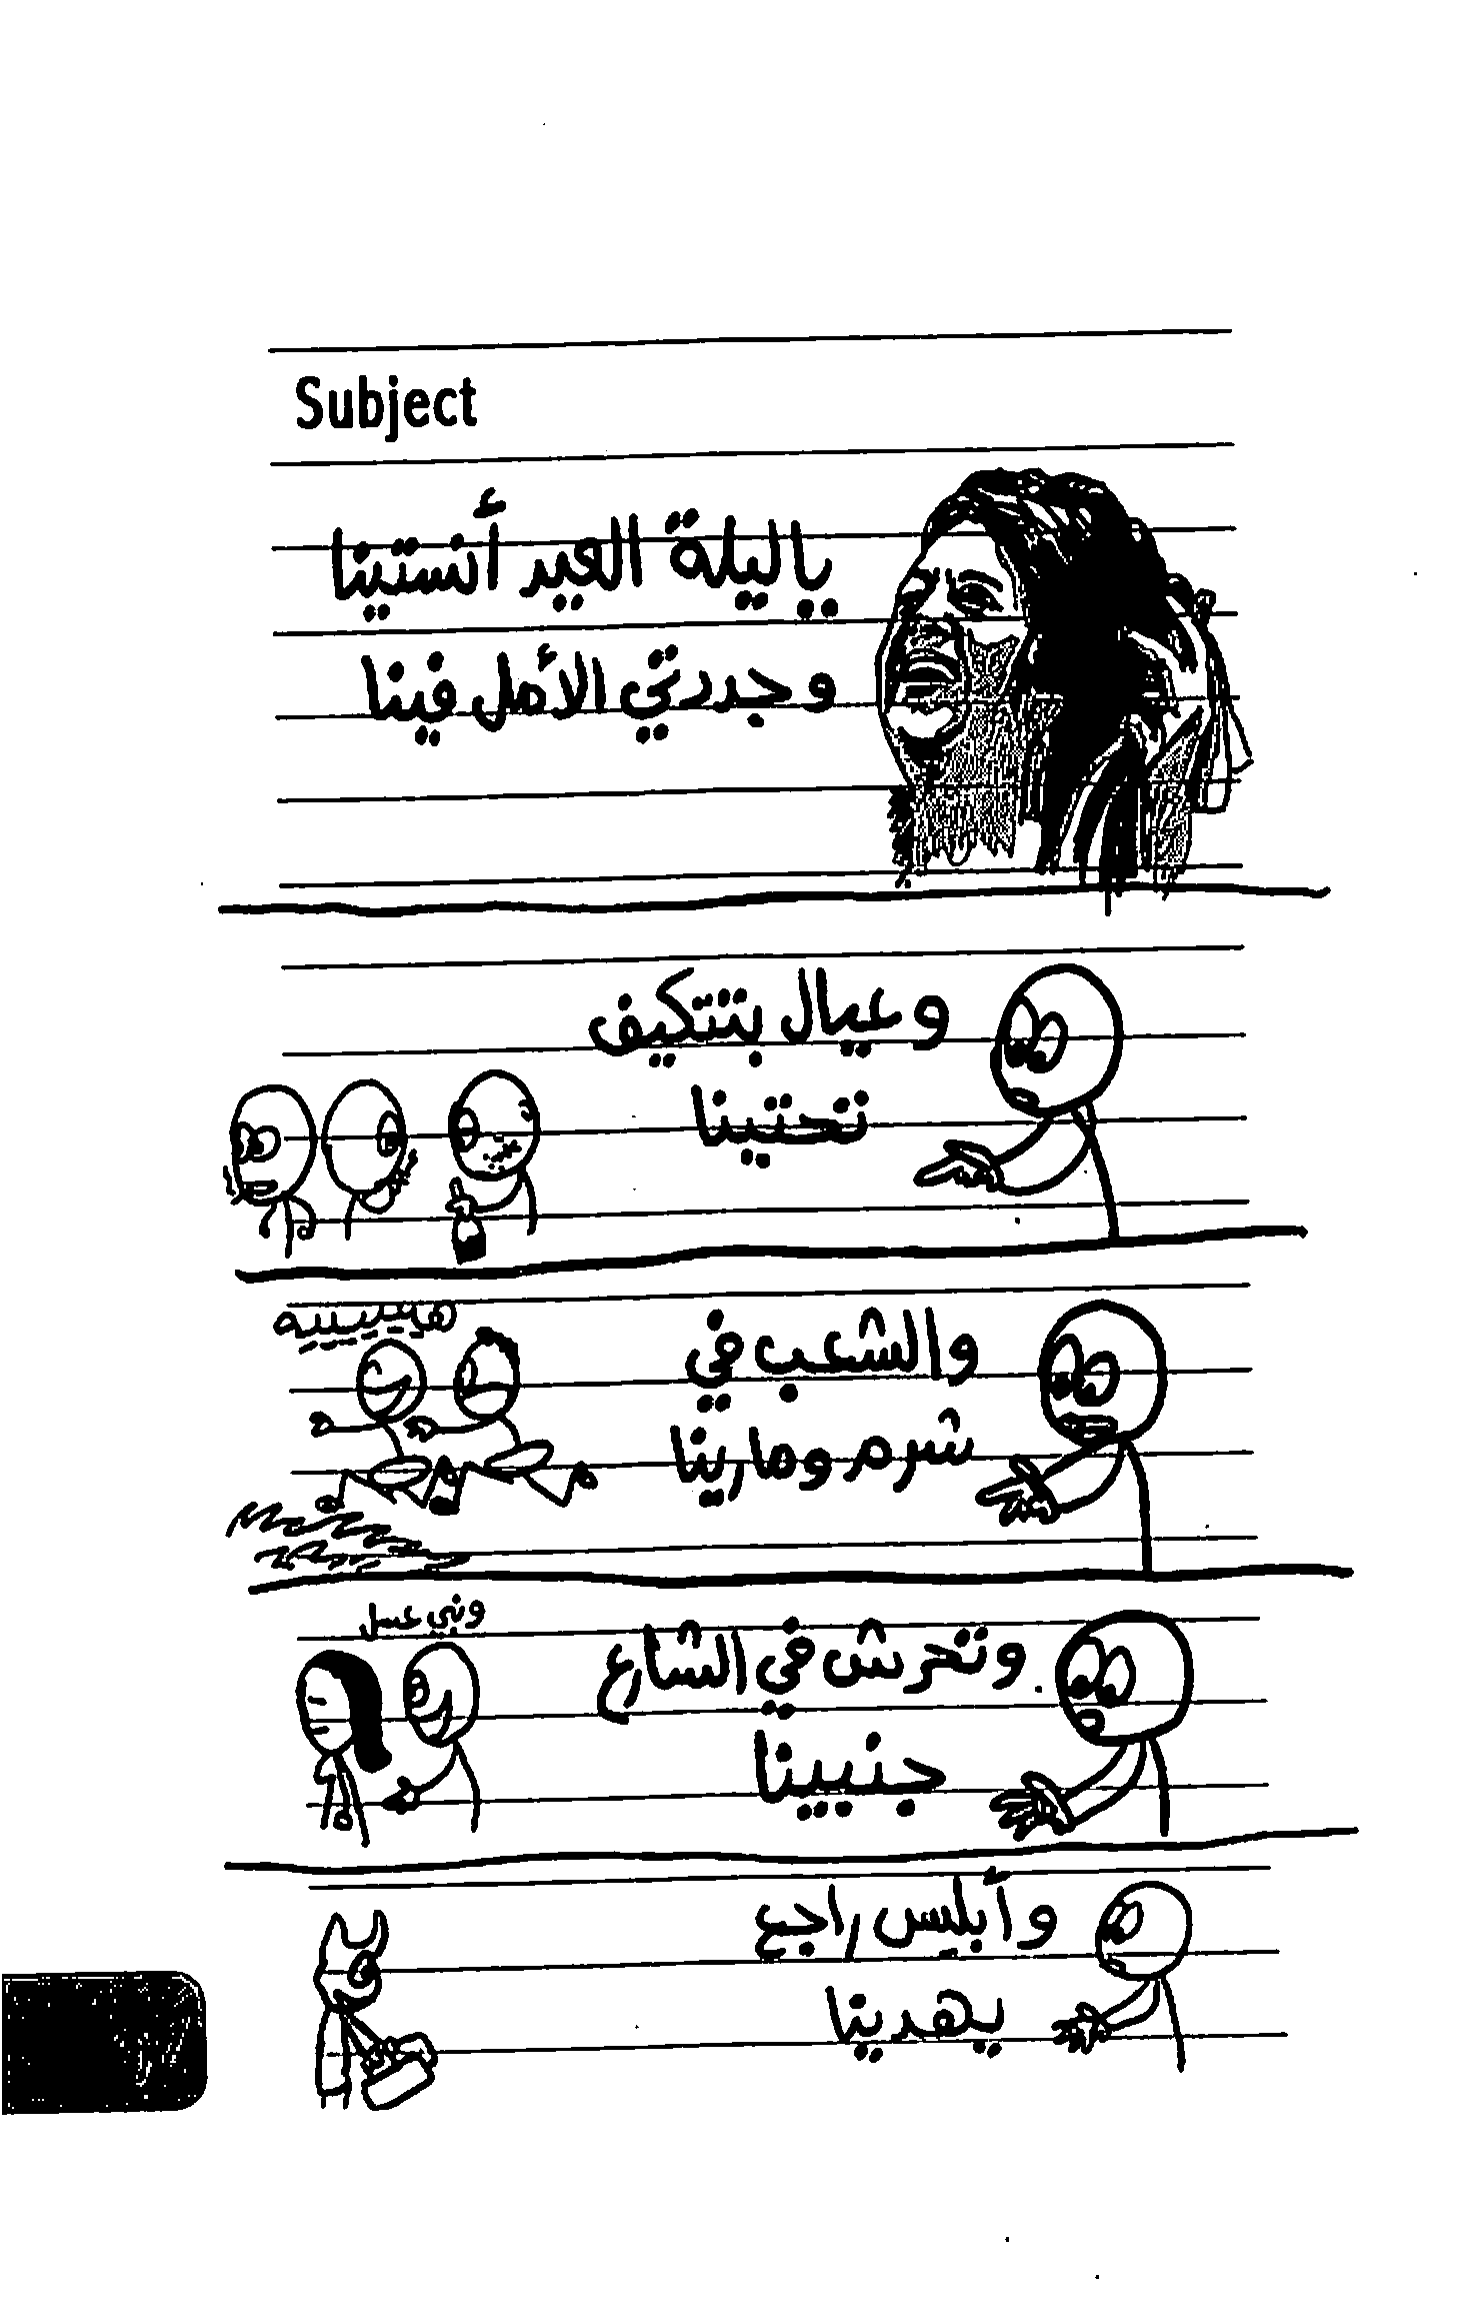 Subject
ياليلة العيد أنستينا
وجددتي الأمل فينا
وعيال بتتكيف
تحتينا
هيييييه
والشعب في
شرم ومارينا
وني عسل
وتحرش في الشارع
جنبينا
وأبليس راجع
يهدينا